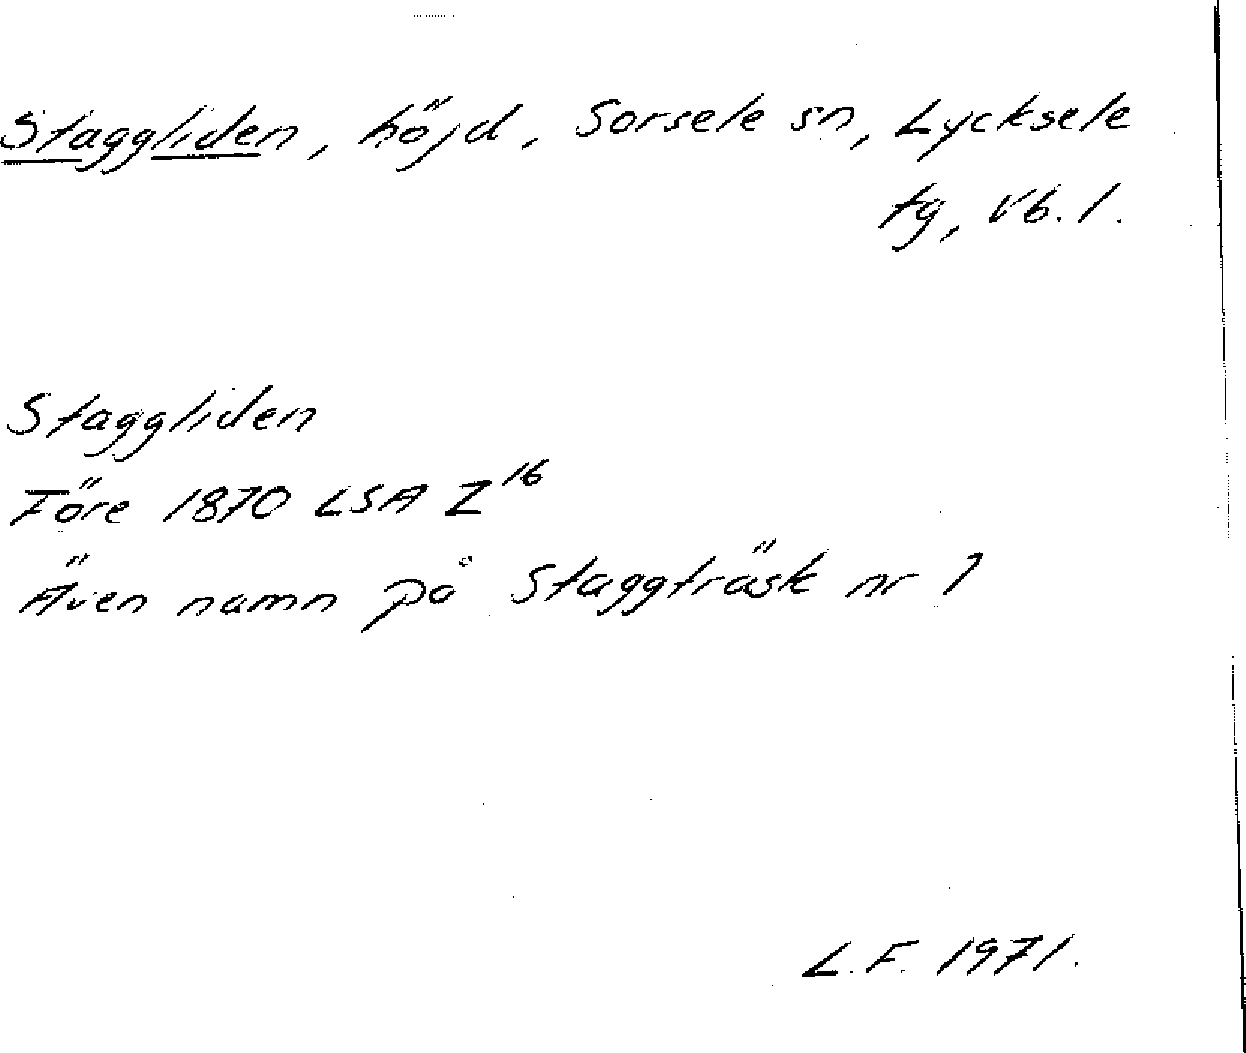 Staggliden, höjd, Sorsele sn, Lycksele
tg, Vb. l.
Staggliden
Före 1870 LSA Z16
Även namn på Staggträsk nr 1
L.F. 1971.